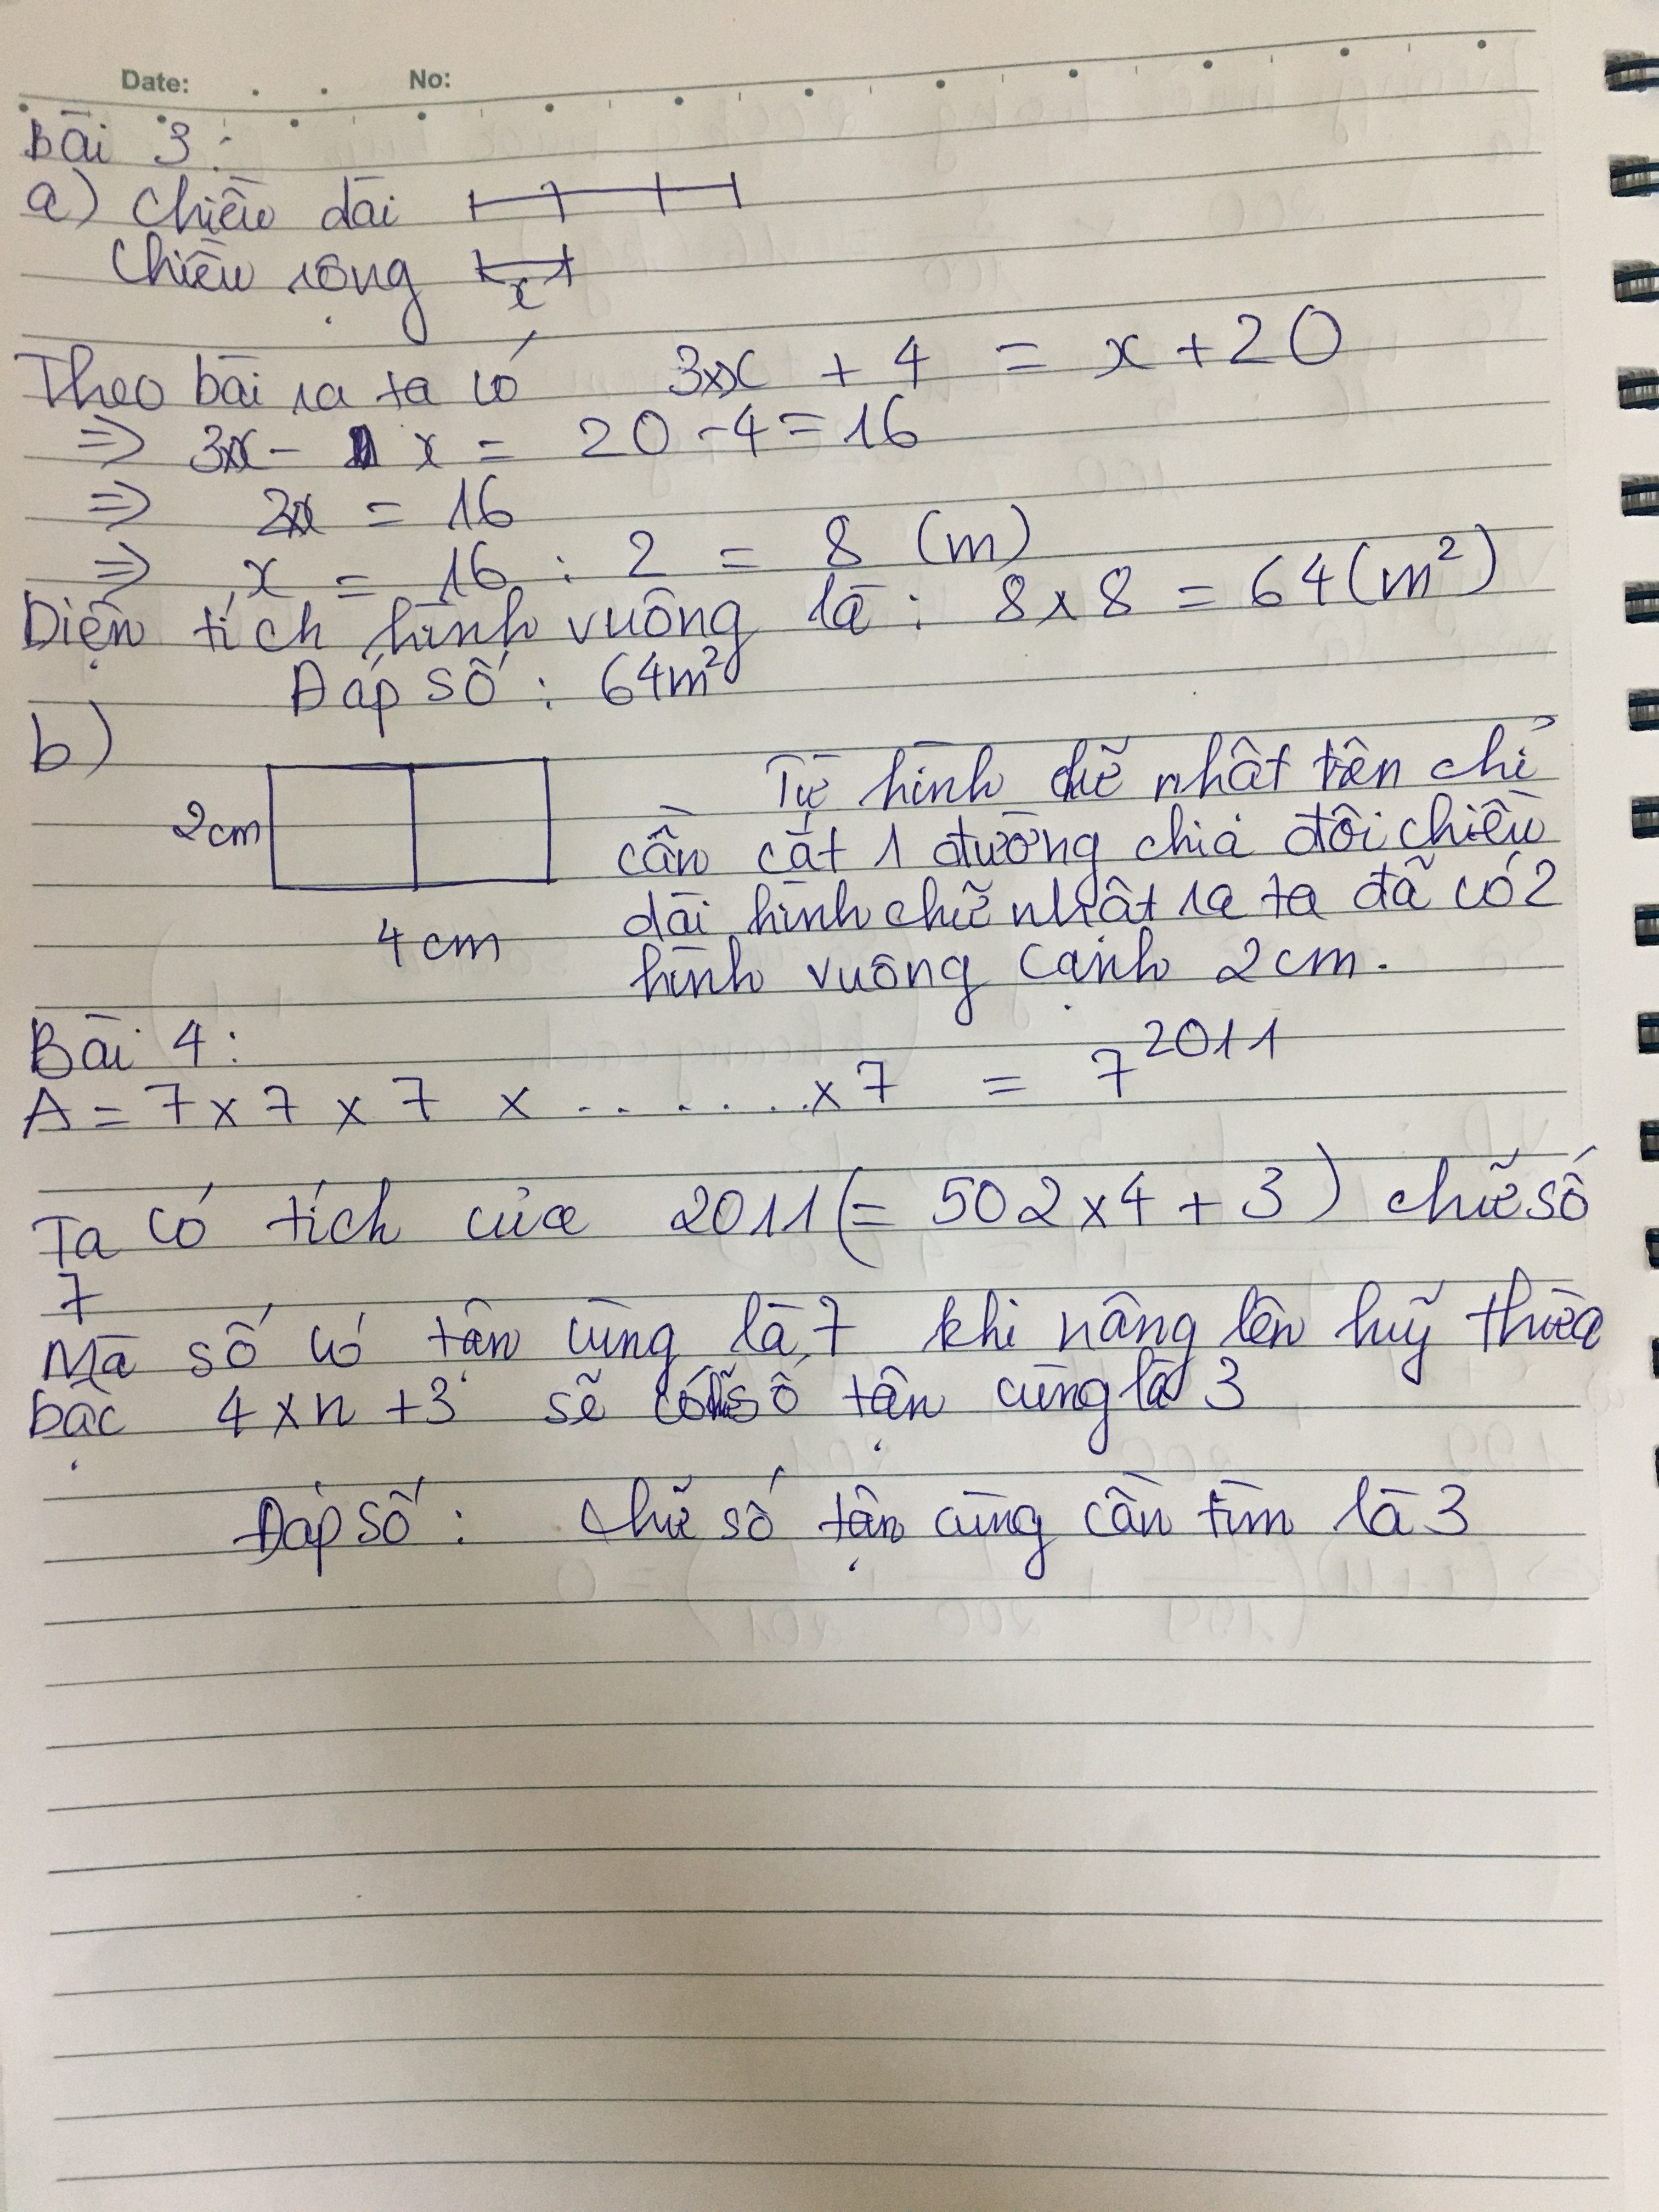 Date: No:
Bài 3:
a) Chiều dài
Chiều rộng
x
Theo bài ra ta có 3x + 4 = x + 20
=> 3x - x = 20 - 4 = 16
=> 2x = 16
=> x = 16 : 2 = 8 (m)
Diện tích hình vuông là : 8 x 8 = 64 (m²)
Đáp số : 64m²
b)
2cm
4 cm
Từ hình chữ nhật trên chỉ
cần cắt 1 đường chia đôi chiều
dài hình chữ nhật ra ta đã có 2
hình vuông cạnh 2cm.
Bài 4:
A = 7 x 7 x 7 x ....... x 7 = 7²⁰¹¹
Ta có tích của 2011 (= 502 x 4 + 3) chữ số
7
Mà số có tận cùng là 7 khi nâng lên luỹ thừa
bậc 4 x n + 3 sẽ có số tận cùng là 3
Đáp số : Chữ số tận cùng cần tìm là 3